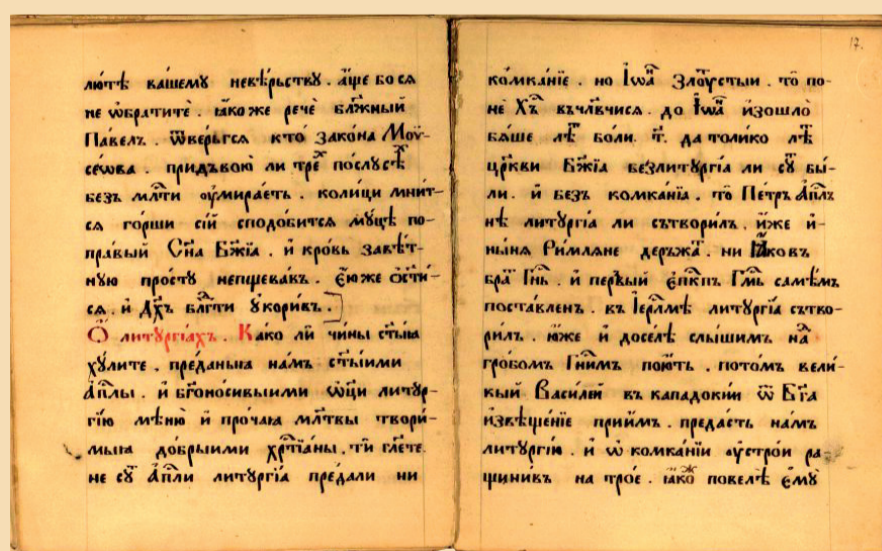 лю́тѣ вашемꙋ невѣ́рьствꙋ . а҆́ще бо сѧ
не ѡ҆брати́те . ꙗ҆́ко же речѐ бл҃жный
Па́велъ . ѿве́ргсѧ кто̀ зако́на Моѵ-
се́ѡва . при двою̀ ли тре́ послꙋсѣ
без̾ мл҃ти оу҆мира́еть . коли́ци мнит-
сѧ го́рши сі́й сподо́битсѧ мꙋ́цѣ по-
пра́вый Сн҃а Бж҃їа . и҆ кро́вь завѣ́т-
нꙋю про́стꙋ непщева́въ . е҆́ю же ѡ҆ст҃и́-
сѧ . и҆ Дх҃ъ бл҃гти оу҆кори́въ .
Ѽ литꙋргі́ахъ . Ка́ко лѝ чи́ны ст҃ы́ꙗ
хꙋ́лите . пре́даныѧ на́мъ ст҃ы́ими
а҆пл҃ы . и҆ бг҃оно́сивыими ѻ҆ц҃и литꙋр-
гі́ю мѣ́ню и҆ про́чаꙗ мл҃твы твори́-
мыꙗ до́брыими хр҃тїа́ны . тѝ гл҃ете
не сꙋ́ а҆пл҃и литꙋргі́а пре́дали ни
17.
ко́мканїе . но І҆ѡа҃ Злаꙋ́стыи . то̀ по-
не́ Х҃ъ въчл҃вчисѧ . до І҆ѡа҃ и҆зошло̀
бѧ́ше лѣ́ бо́ли . т҃ . да толи́ко лѣ́
цр҃кви Бж҃їа безлитꙋргі́а ли сꙋ̀ бы́-
ли . и҆ без̾ комка́нїа . то̀ Пе́тръ а҆пл҃ъ
нѣ́ литꙋргі́а ли сътвори́лъ . и҆́же и҆-
ны́нѧ Ри́млѧне держа́ . ни І҆а́ковъ
бра́ Гн҃ь . и҆ пе́рвый е҆пкпъ Гм҃ь самѣ́мъ
поста́вленъ . въ І҆ерⷭ҇лмѣ литꙋргі́а сътво-
ри́лъ . ю҆́же и҆ досе́лѣ слы́шимъ на́
гро́бомъ Гн҃имъ пою́ть . пото́мъ вели́-
кый Васи́лей въ кападокі́и ѿ Бг҃а
и҆звѣще́нїе прїи́мъ . преда́сть на́мъ
литꙋргі́ю . и҆ ѡ҆ комка́нїи оу҆стро́и ра-
щини́въ на тро́е . ꙗ҆́кож повелѣ̀ е҆мꙋ̀